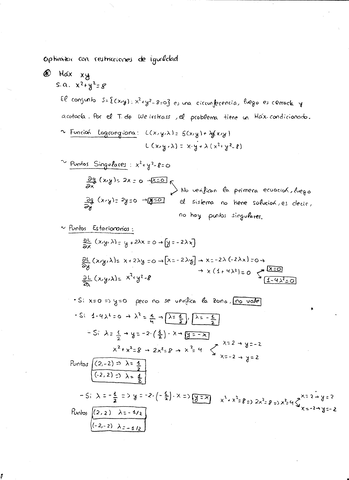 Optimizar con restricciones de igualdad
Máx xy
s.a. x²+y²=8
El conjunto S={(x,y): x²+y²-8=0} es una circunferencia, luego es cerrado y
acotado. Por el T. de Weirstrass, el problema tiene un Máx. condicionado.
~ Función Lagrangiana: L(x,y,λ) = f(x,y) + λg(x,y)
L(x,y,λ) = x·y + λ(x²+y²-8)
~ Puntos Singulares: x²+y²-8=0
∂g/∂x (x,y) = 2x = 0 → x=0
∂g/∂y (x,y) = 2y = 0 → y=0
No verifican la primera ecuación, luego
el sistema no tiene solución, es decir,
no hay puntos singulares.
~ Puntos Estacionarios:
∂L/∂x (x,y,λ) = y + 2λx = 0 → y=-2λx
∂L/∂y (x,y,λ) = x + 2λy = 0 → x=-2λy → x = -2λ(-2λx) = 0 →
→ x(1+4λ²) = 0 x=0
1-4λ²=0
∂L/∂λ (x,y,λ) = x²+y²-8
• Si x=0 => y=0 pero no se verifica la no vale
• Si 1-4λ²=0 → λ² = 1/4 → λ=1/2, λ=-1/2
- Si λ = 1/2 → y = -2·(1/2)·x → y=-x
x²+x²=8 → 2x²=8 → x²=4 x=2 → y=-2
x=-2 → y=2
Puntos (2,-2) => λ = 1/2
(-2,2) => λ = 1/2
- Si λ = -1/2 => y = -2·(-1/2)·x => y=x x²+x²=8 => 2x²=8 => x²=4 x=2 → y=2
x=-2 → y=-2
Puntos (2,2) λ=-1/2
(-2,-2) λ=-1/2